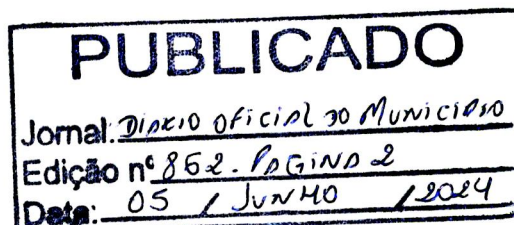 PUBLICADO
Jornal: DIARIO OFICIAL DO MUNICIPIO
Edição nº 862. PAGINA 2
Data: 05 / JUNHO / 2024